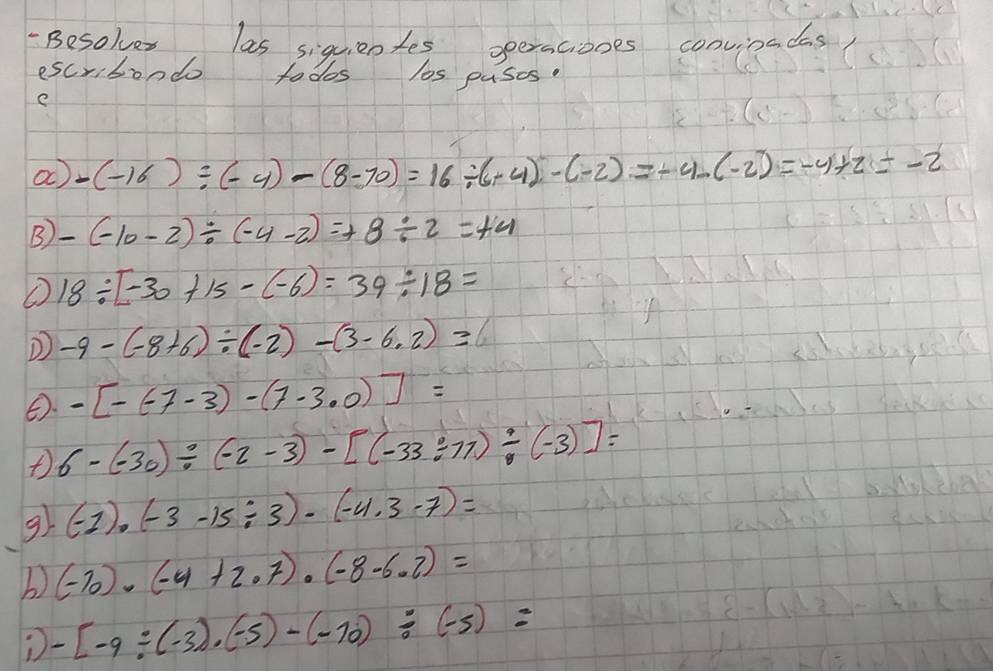 - Resolver las siguientes operaciones convinadas,
escribiendo todos los pasos.
e
a) - (-16) ÷ (-4) - (8-10) = 16 ÷ (-4) - (-2) = -4 - (-2) = -4 + 2 = -2
B) - (-10 - 2) ÷ (-4 - 2) = +8 ÷ 2 = +4
C) 18 ÷ [-30 + 15 - (-6) = 39 ÷ 18 =
D) -9 - (-8 + 6) ÷ (-2) - (3 - 6.2) = 6
E) - [- (-7 - 3) - (7 - 3.0)] =
f) 6 - (-30) ÷ (-2 - 3) - [(-33 ÷ 11) ÷ (-3)] =
g) (-1) . (-3 - 15 ÷ 3) - (-4.3 - 7) =
h) (-10) . (-4 + 2.7) . (-8 - 6.2) =
i) - [-9 ÷ (-3) . (-5) - (-10) ÷ (-5) =